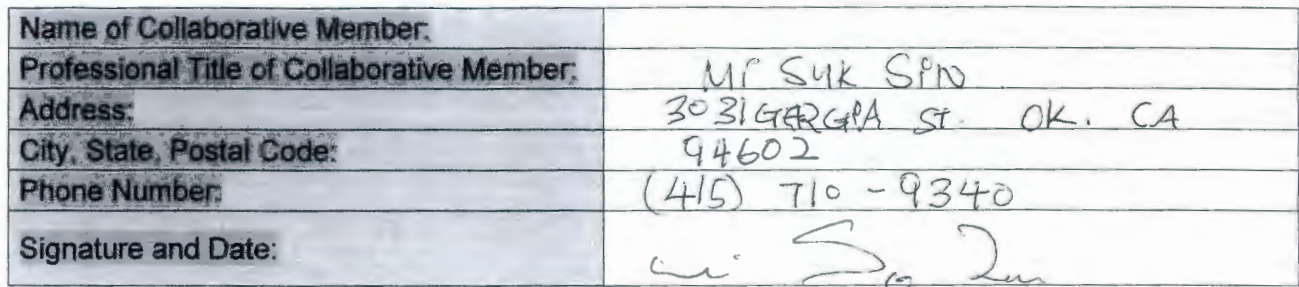 Name of Collaborative Member:
Professional Title of Collaborative Member: Mi Suk SiN
Address: 3031 St. OK. CA
City, State, Postal Code: 94602
Phone Number: (415) 710-9340
Signature and Date: